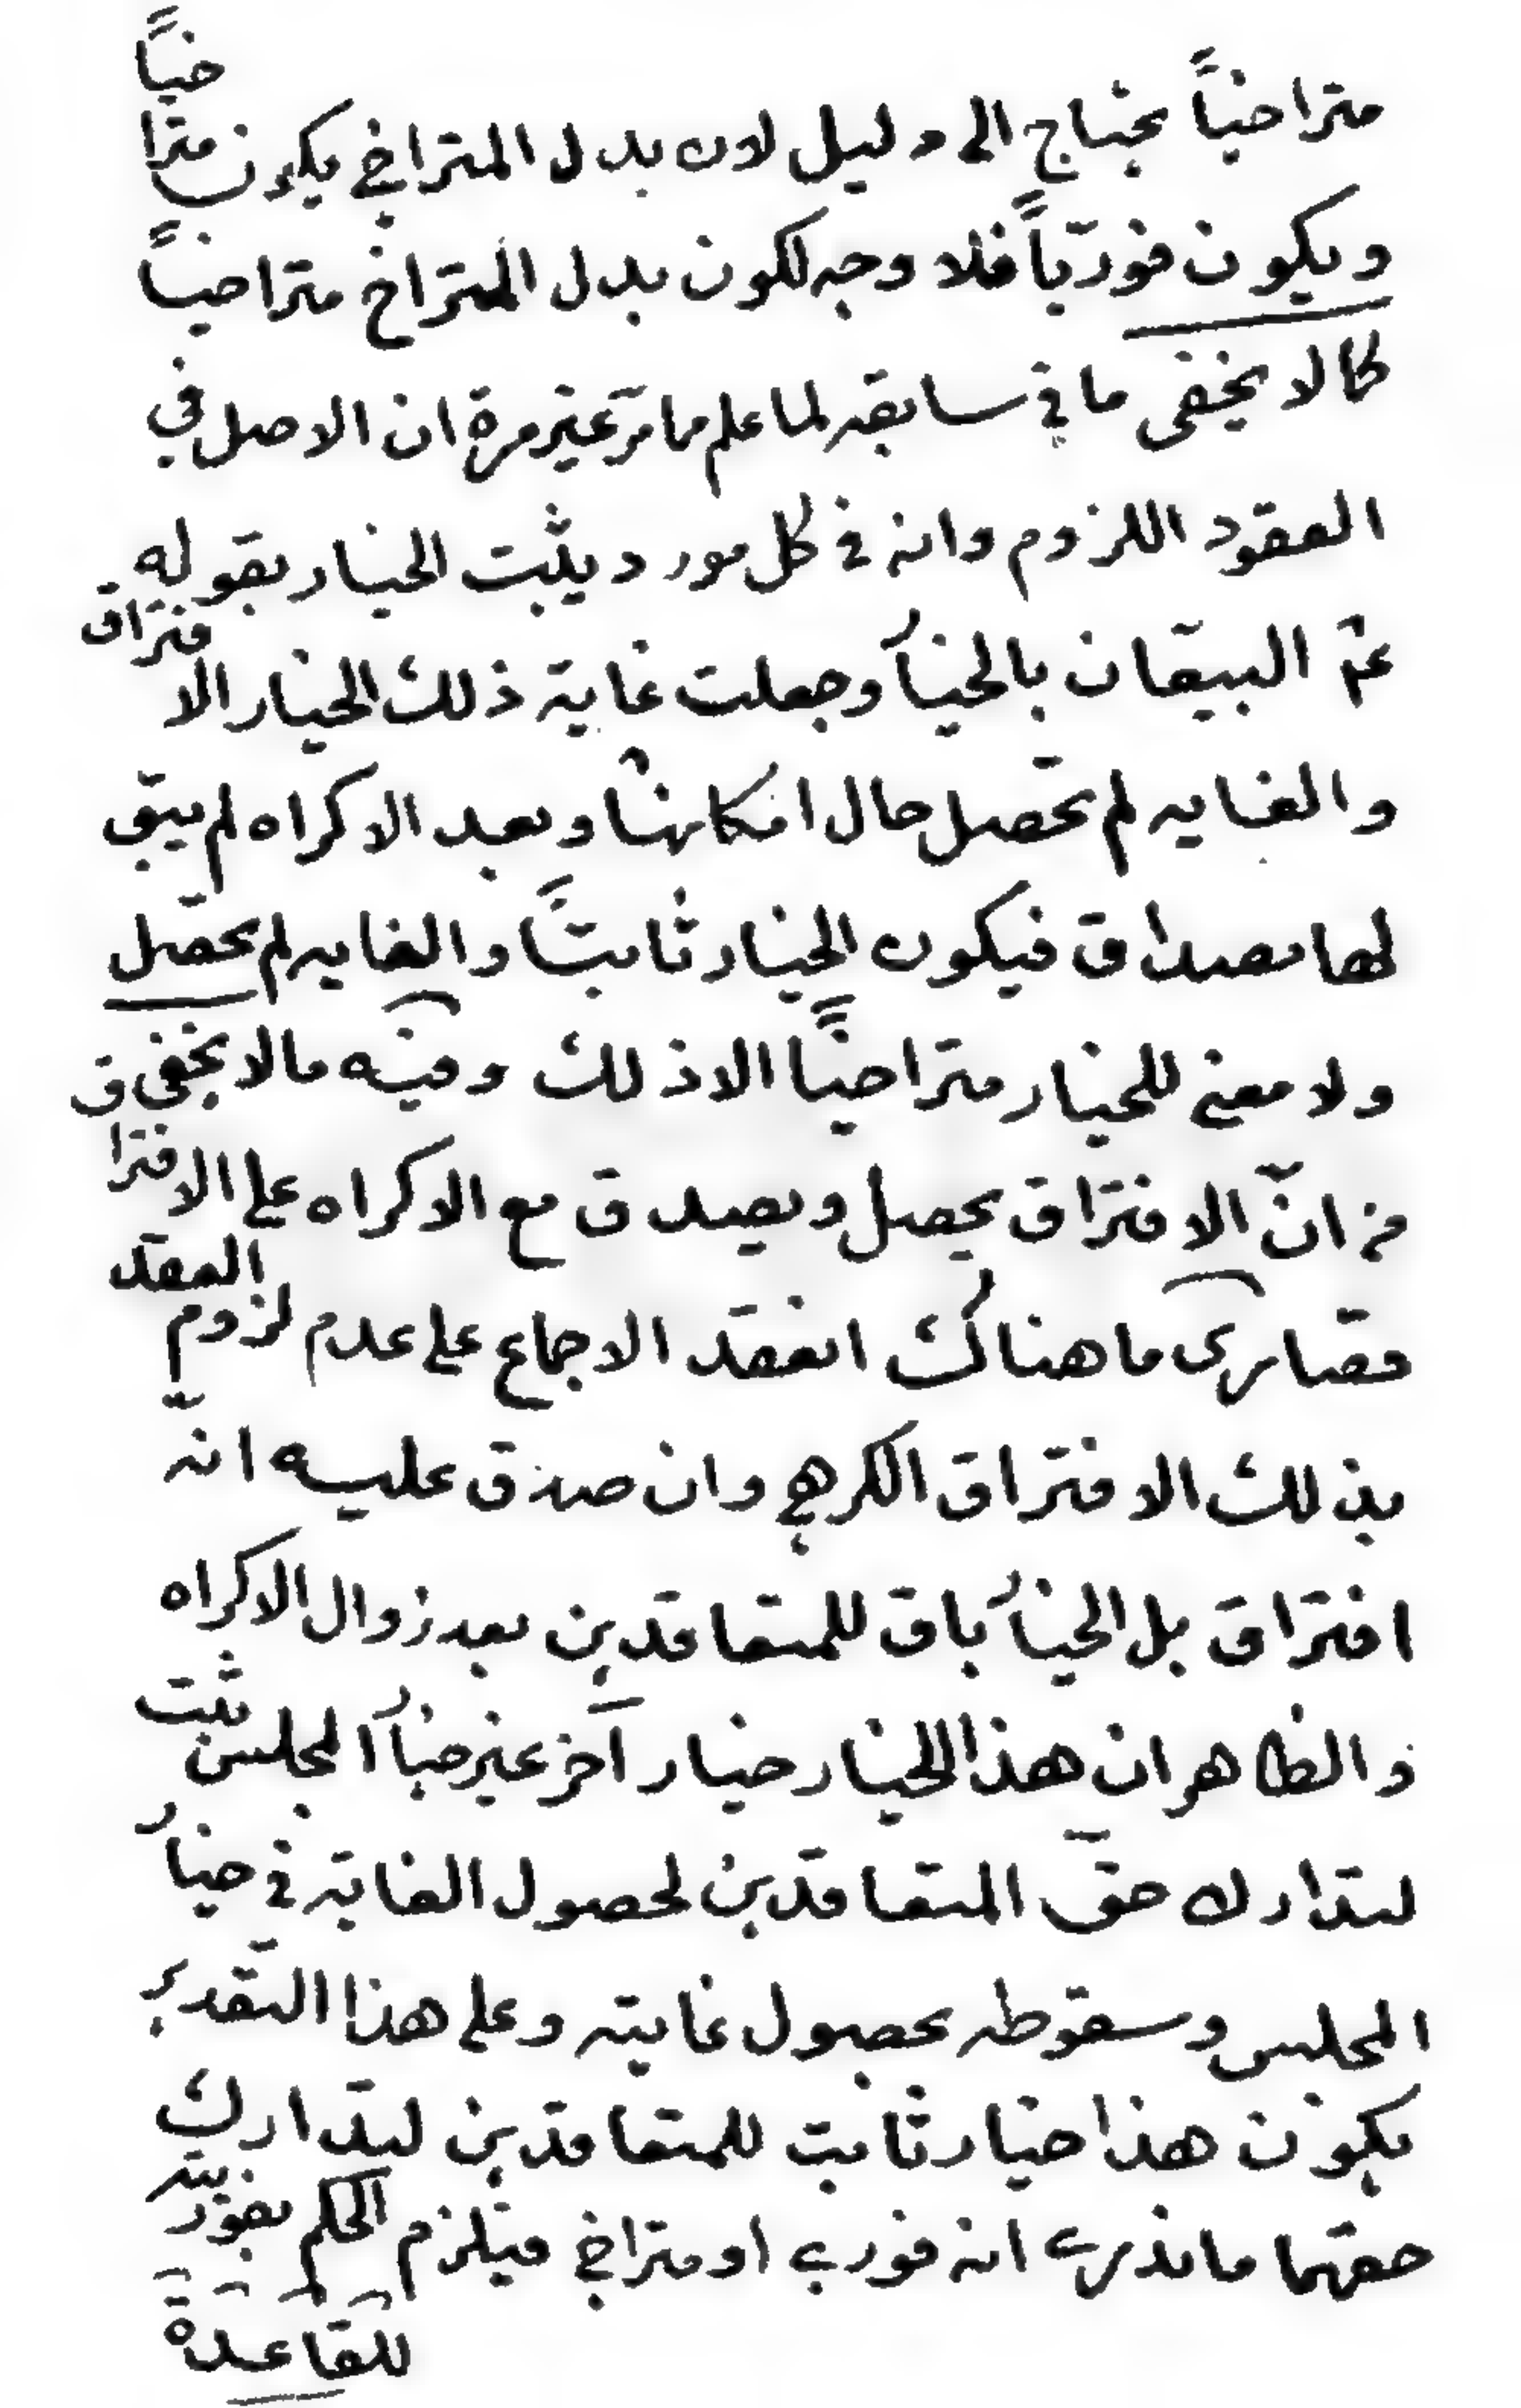 متراخياً يحتاج الى دليل لان بدل المتراخي يكون متراخياً
ويكون فوريّاً فلا وجه لكون بدل المتراخ متراخياً
كما لا يخفى ما في سابقه لما علم مما مرّ غير مرة ان الاصل في
العقود اللزوم وانه في كل مورد يثبت الخيار بقوله
عم البيّعان بالخيار وجعلت غاية ذلك الخيار الافتراق
والغايه لم تحصل حال امكانها وبعد الاكراه لم يبق
لها مصداق فيكون الخيار ثابتاً والغايه لم تحصل
ولا معنى للخيار متراخياً الا ذلك وفيه ما لا يخفى
من انّ الافتراق يحصل ويصدق مع الاكراه على الافتراق
قصارى ما هناك انعقد الاجماع على عدم لزوم العقد
بذلك الافتراق الكرهي وان صدق عليه انّه
افتراق بل الخيار باق للمتعاقدين بعد زوال الاكراه
والظاهر ان هذا الخيار خيار آخر غير خيار المجلس ثبت
لتدارك حقّ المتعاقدين لحصول الغاية في خيار
المجلس وسقوطه بحصول غايته وعلى هذا التقدير
يكون هذا خيار ثابت للمتعاقدين لتدارك
حقهما ما ندري انه فوري او متراخي فيلزم الحكم بفوريته
للقاعدة